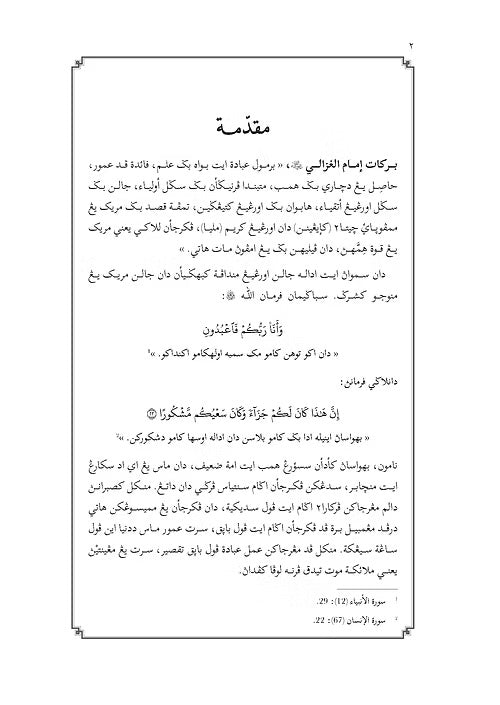 ٢
مقدّمـة
بـركات إمـام الغزالـي ﷺ، « برمـول عبادة ايت بواه بڬ علـم، فائدة ڤد عمور،
حاصيل يڠ دچاري بـڬ همب، متبندا ڤرنيڬأن بـڬ سڬل أولياء، جالن بـڬ
سڬل اورڠيڠ أتقياء، هابوان بـڬ اورڠيڠ كتيڠڬين، تمڤة قصد بـڬ مريك يڠ
ممڤوياءي چيتا٢ (كايڠينن) دان اورڠيڠ كريم (مليا)، ڤكرجأن للاكي يعني مريك
يـڠ قوة هِمَّهـن، دان ڤيليهن بـڬ يڠ امڤون مات هاتي. »
دان سموان ايت اداله جالن اورڠيڠ منداڤة كبهڬيأن دان جالن مريك يـڠ
منوجو كشرڬ. سـباڬيمان فرمان الله ﷻ :
وَأَنَا۠ رَبُّكُمْ فَٱعْبُدُونِ
« دان اكو توهن كامو مك سمبه اولهكامو اكنداكو. »¹
دانلاڬي فرمانن:
إِنَّ هَٰذَا كَانَ لَكُمْ جَزَآءً وَكَانَ سَعْيُكُم مَّشْكُورًا ۝٢٢
« بهواسان اينيله ادا بڬ كامو بلاسن دان اداله اوسها كامو دشكوركن. »²
نامون، بهواسان كأدأن سسؤرڠ همب ايت امة ضعيف، دان ماس يڠ اي اد سكارڠ
ايت منچابر، سدڠكن ڤكرجأن اڬام سنتياس ڤرڬي دان داتڠ. منكل كصبرانن
دالم مڠرجاكن ڤركارا٢ اڬام ايت ڤول سديكية، دان ڤكرجأن يڠ مميسوڠكن هاتي
درڤد مڠمبيل برة ڤد ڤكرجأن اڬام ايت ڤول بايق، سرت عمور ماس ددنيا اين ڤول
ساڠة سيڠكة. منكل ڤد مڠرجاكن عمل عبادة ڤول بايق تقصير، سرت يڠ مڠينتين
يعنـي ملائكـة موت تيدق ڤرنـه لوڤا كڤدان.
¹ سورة الأنبياء (12): 29.
² سورة الإنسان (67): 22.